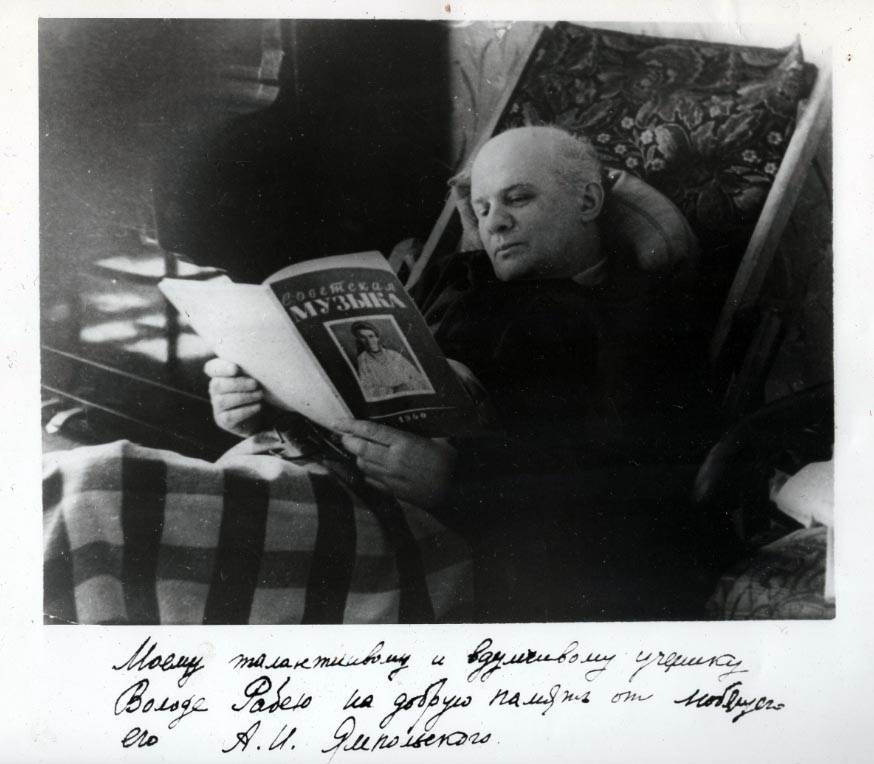 Советская
МУЗЫКА
1940
Моему талантливому и вдумчивому ученику
Володе Рабею на добрую память от любящего
его А. И. Ямпольского.